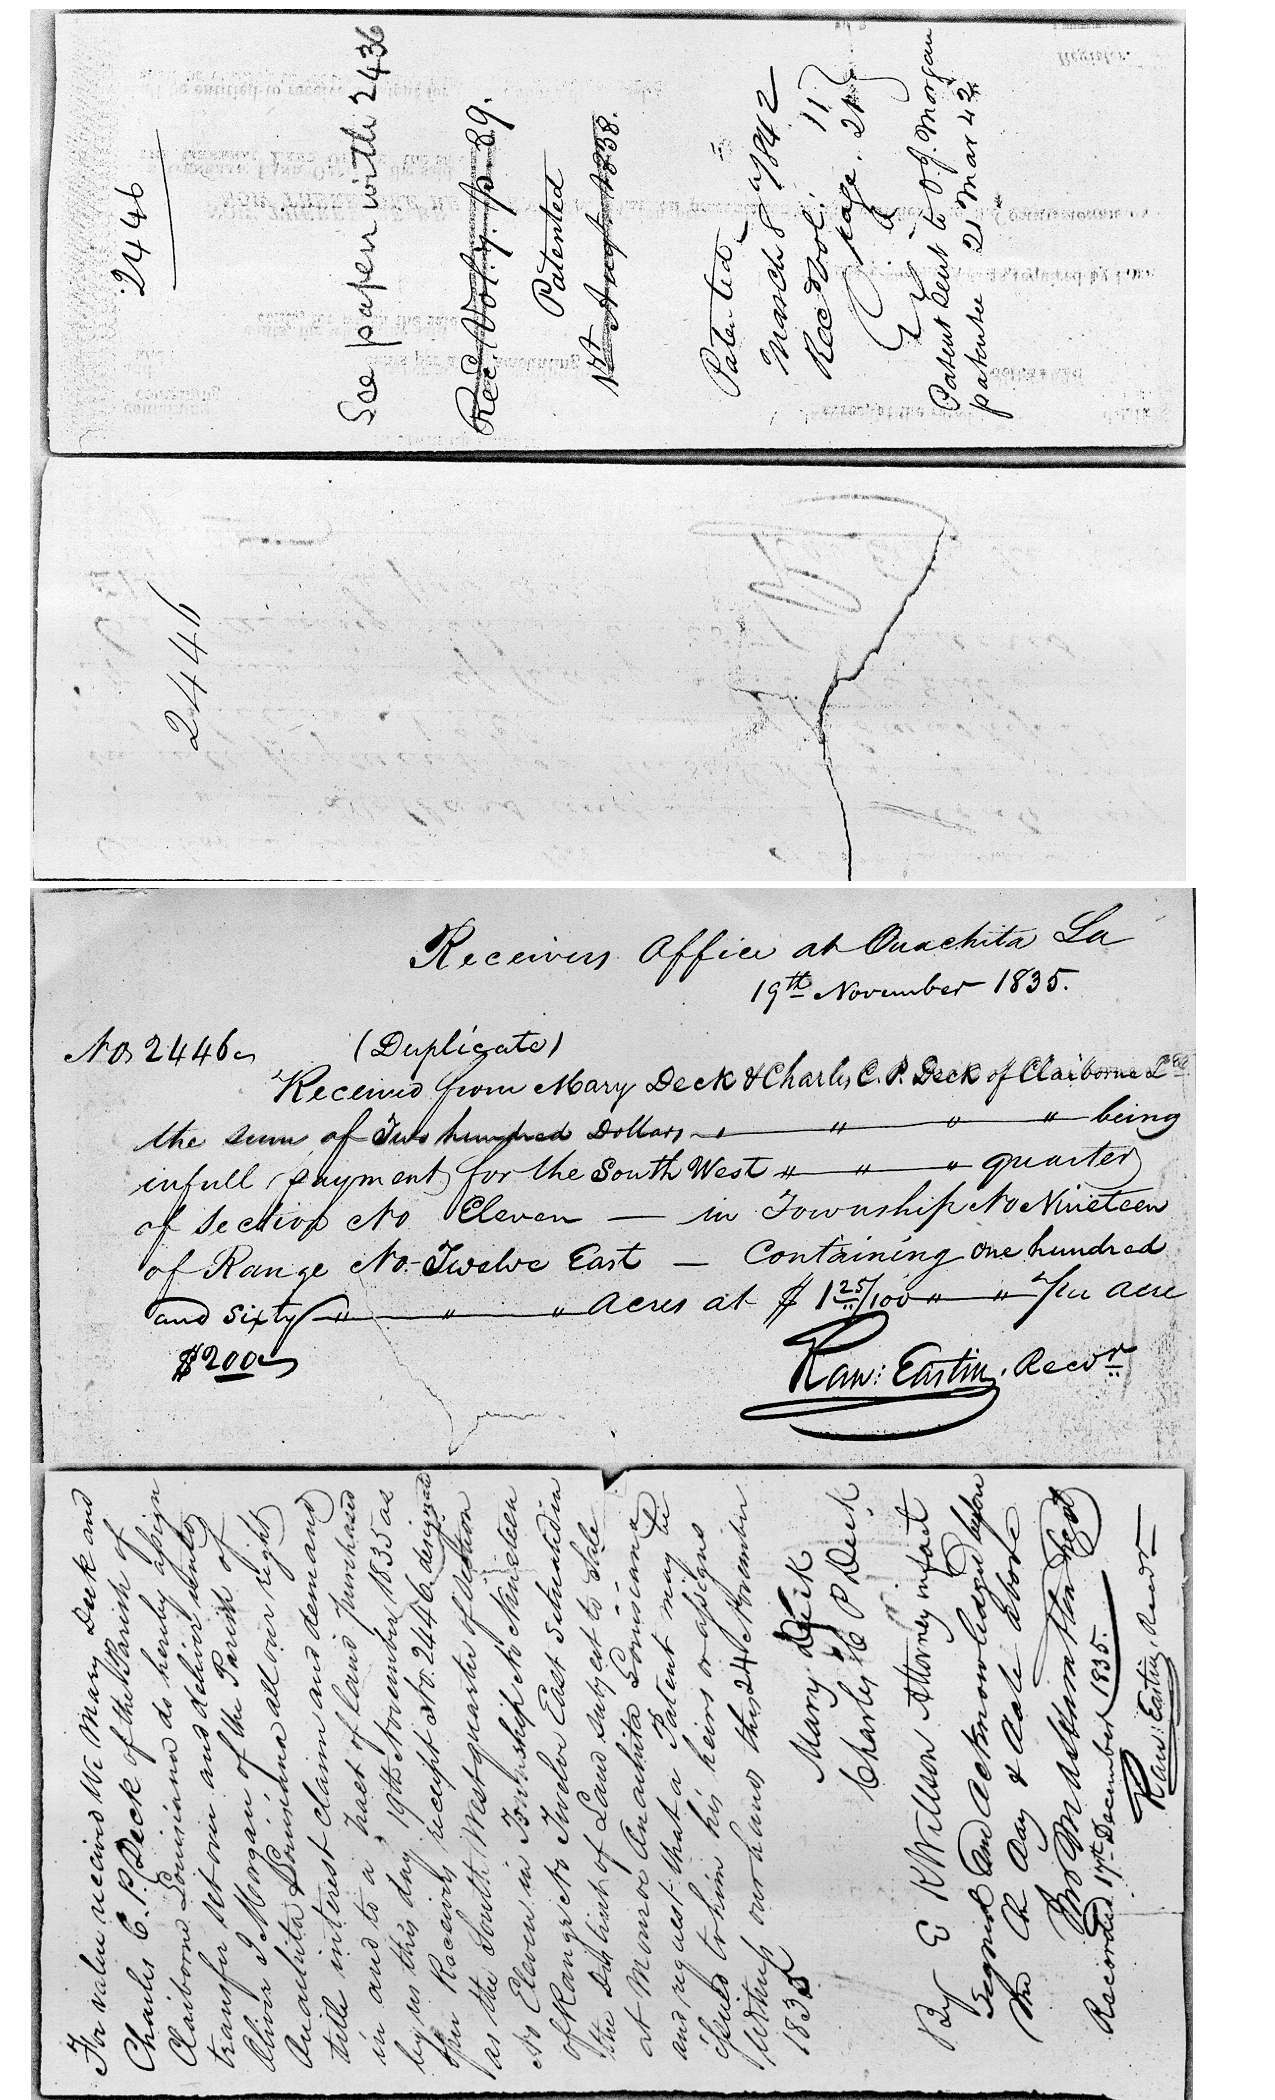 2446
See paper with 2436
Rec. Vol. 4. p. 89.
Patented
1st Augt 1838.
Patented
March 8 1842
Rec Vol. 11
page.
Patent sent to O. J. Morgan
patentee 21 Mar 42
2446
Receivers Office at Ouachita La
19th November 1835.
No 2446 (Duplicate)
Received from Mary Deck & Charles C. P. Deck of Claiborne
the sum of Two hundred Dollars " " " being
in full payment for the South West " " " quarter
of Section No Eleven — in Township No Nineteen
of Range No. Twelve East — Containing one hundred
and Sixty " " " acres at $ 1 25/100 " " per acre
$200
Raw: Eastin. Recvr
For value received We Mary Deck and
Charles C. P. Deck of the Parish of
Claiborne Louisiana do hereby assign
transfer set over and deliver unto
Oliver J Morgan of the Parish of
Ouachita Louisiana all our right
title interest claim and demand
in and to a tract of land purchased
by us this day 19th November 1835 as
per Receivers receipt No. 2446 designated
as the South West quarter of Section
No Eleven in Township No Nineteen
of Range No Twelve East Situated in
the District of Land subject to Sale
at Monroe Ouachita Louisiana
and request that a Patent may be
issued to him his heirs or assigns
Witness our hands this 24 November
1835
Mary Deck
Charles C P Deck
By E K Willson Attorney in fact
Signed and Acknowledged before
me the day & date above
Recorded 17th December 1835.
Raw: Eastin, Recvr